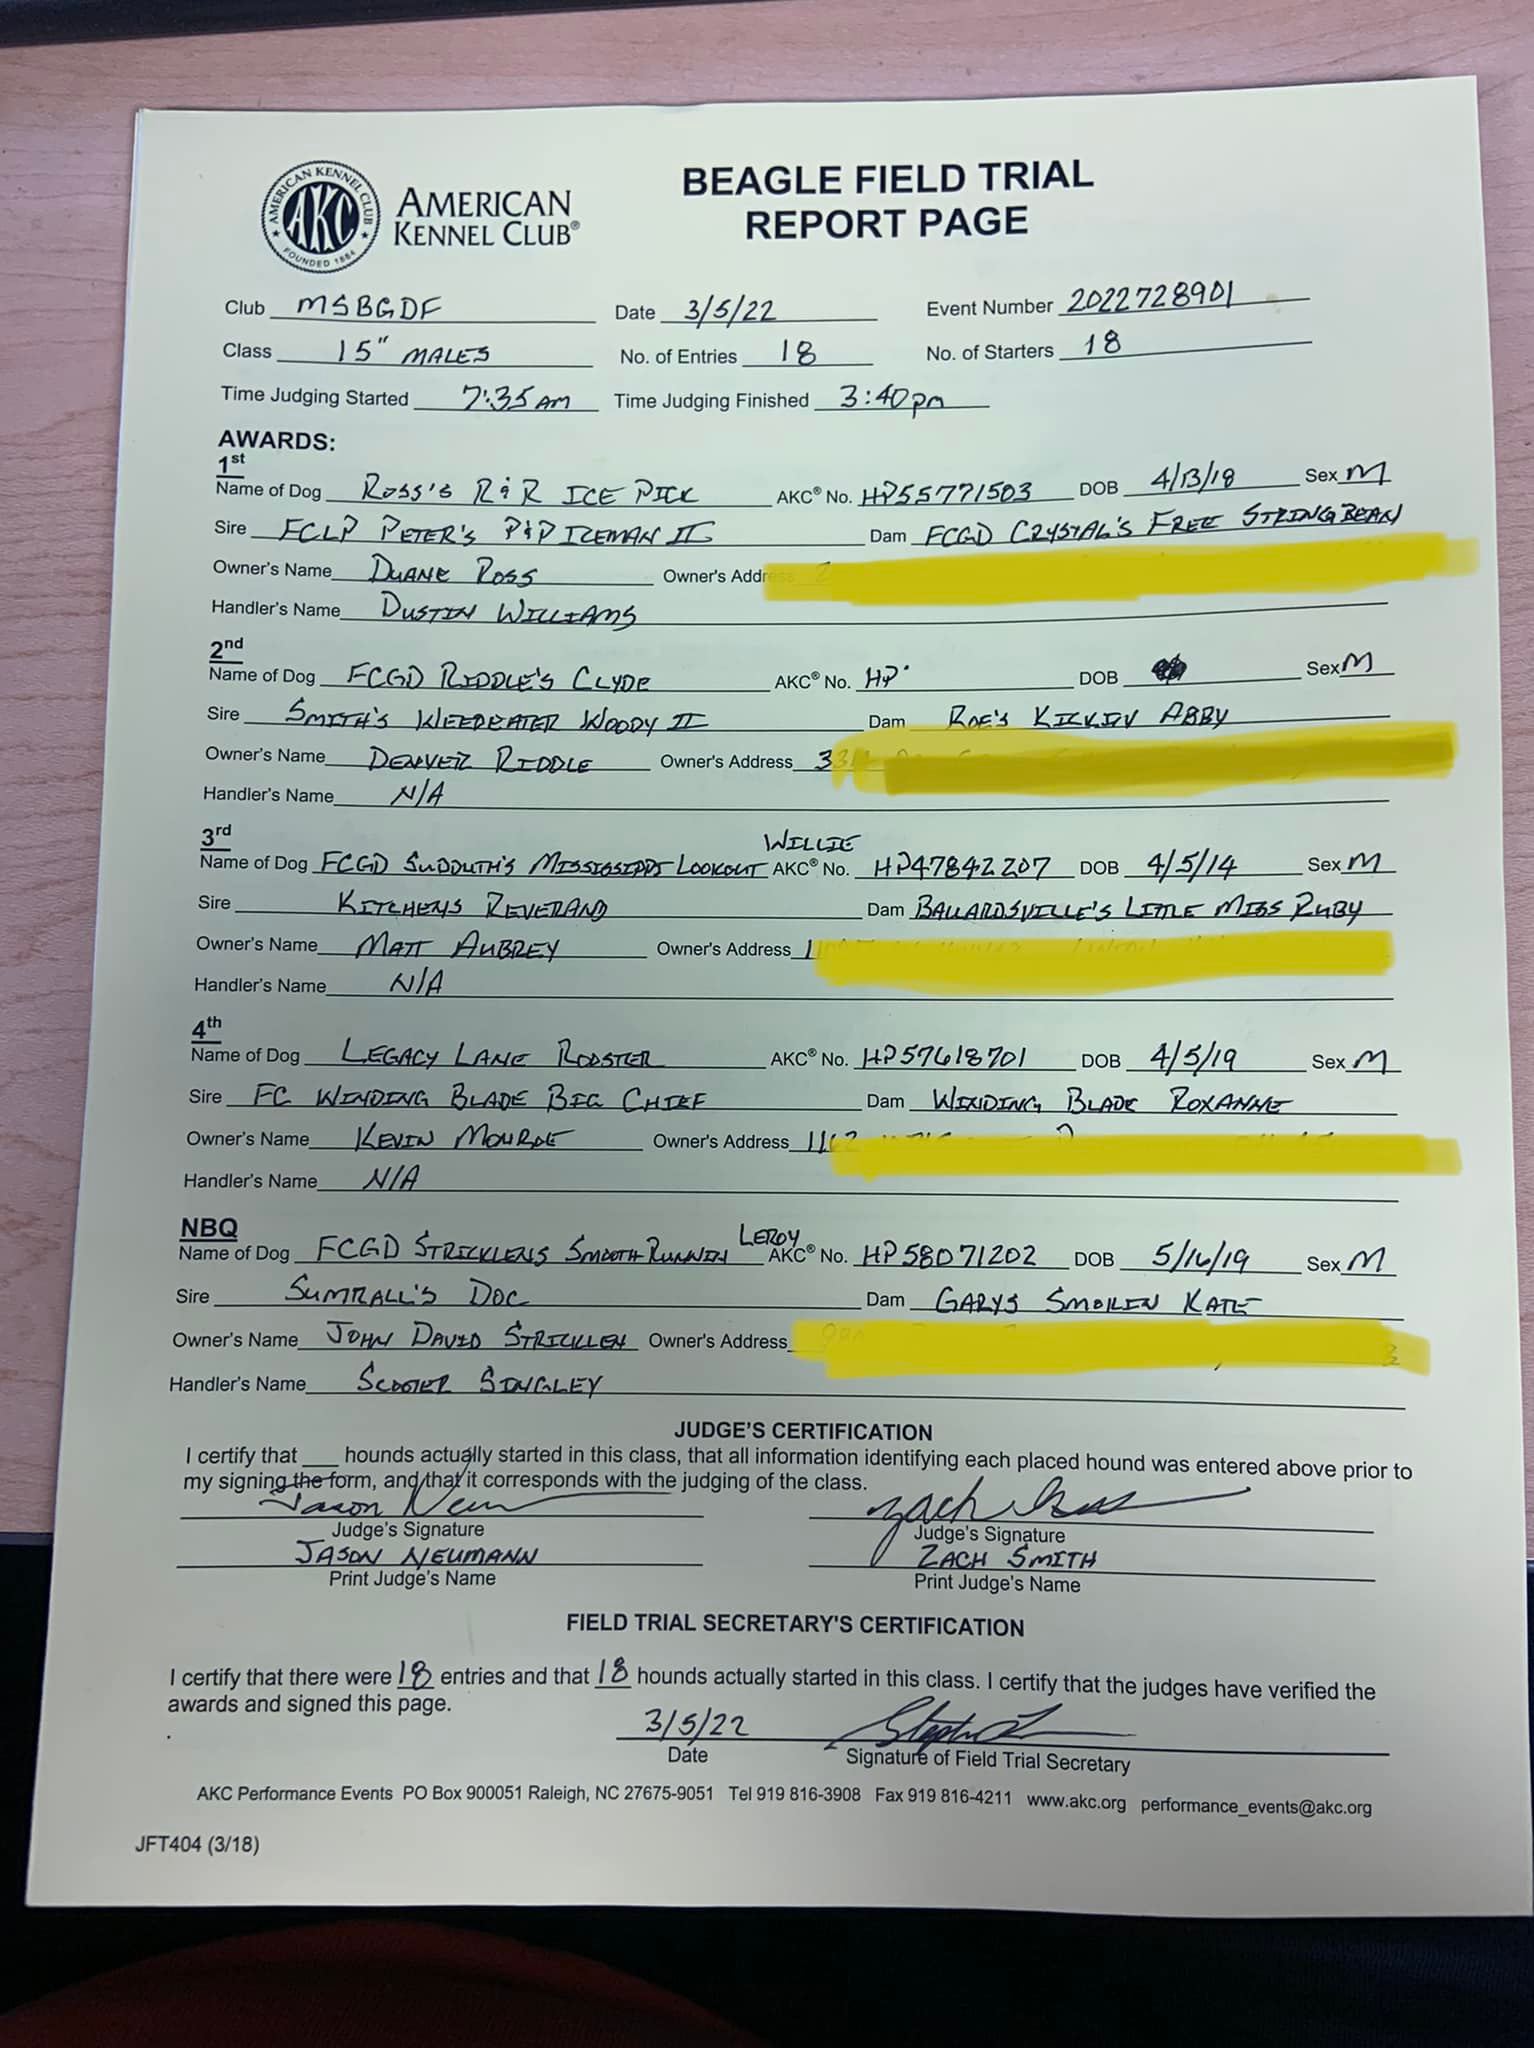 AMERICAN KENNEL CLUB
AKC
FOUNDED 1884
AMERICAN
KENNEL CLUB®
BEAGLE FIELD TRIAL
REPORT PAGE
Club MSBGDF Date 3/5/22 Event Number 2022728901
Class 15" MALES No. of Entries 18 No. of Starters 18
Time Judging Started 7:35 AM Time Judging Finished 3:40 pm
AWARDS:
1st
Name of Dog ROSS'S R&R ICE PICK AKC® No. HP55771503 DOB 4/13/18 Sex M
Sire FCLP PETER'S P&P ICEMAN II Dam FCGD CRYSTAL'S FREE STRINGBEAN
Owner's Name DUANE ROSS Owner's Address
Handler's Name DUSTIN WILLIAMS
2nd
Name of Dog FCGD RIDDLE'S CLYDE AKC® No. HP DOB Sex M
Sire SMITH'S WEEDEATER WOODY II Dam ROE'S KICKIN ABBY
Owner's Name DENVER RIDDLE Owner's Address
Handler's Name N/A
3rd
WILLIE
Name of Dog FCGD SUDDUTH'S MISSISSIPPI LOOKOUT AKC® No. HP47842207 DOB 4/5/14 Sex M
Sire KITCHENS REVERAND Dam BALLARDSVILLE'S LITTLE MISS RUBY
Owner's Name MATT AUBREY Owner's Address
Handler's Name N/A
4th
Name of Dog LEGACY LANE ROOSTER AKC® No. HP57618701 DOB 4/5/19 Sex M
Sire FC WINDING BLADE BIG CHIEF Dam WINDING BLADE ROXANNE
Owner's Name KEVIN MONROE Owner's Address
Handler's Name N/A
NBQ
LEROY
Name of Dog FCGD STRICKLENS SMOOTH RUNNIN AKC® No. HP58071202 DOB 5/16/19 Sex M
Sire SUMRALL'S DOC Dam GARYS SMOKIN KATE
Owner's Name JOHN DAVID STRICKLEN Owner's Address
Handler's Name SCOOTER SINGLEY
JUDGE'S CERTIFICATION
I certify that ___ hounds actually started in this class, that all information identifying each placed hound was entered above prior to
my signing the form, and that it corresponds with the judging of the class.
Judge's Signature Judge's Signature
JASON NEUMANN ZACH SMITH
Print Judge's Name Print Judge's Name
FIELD TRIAL SECRETARY'S CERTIFICATION
I certify that there were 18 entries and that 18 hounds actually started in this class. I certify that the judges have verified the
awards and signed this page.
3/5/22
Date Signature of Field Trial Secretary
AKC Performance Events PO Box 900051 Raleigh, NC 27675-9051 Tel 919 816-3908 Fax 919 816-4211 www.akc.org performance_events@akc.org
JFT404 (3/18)